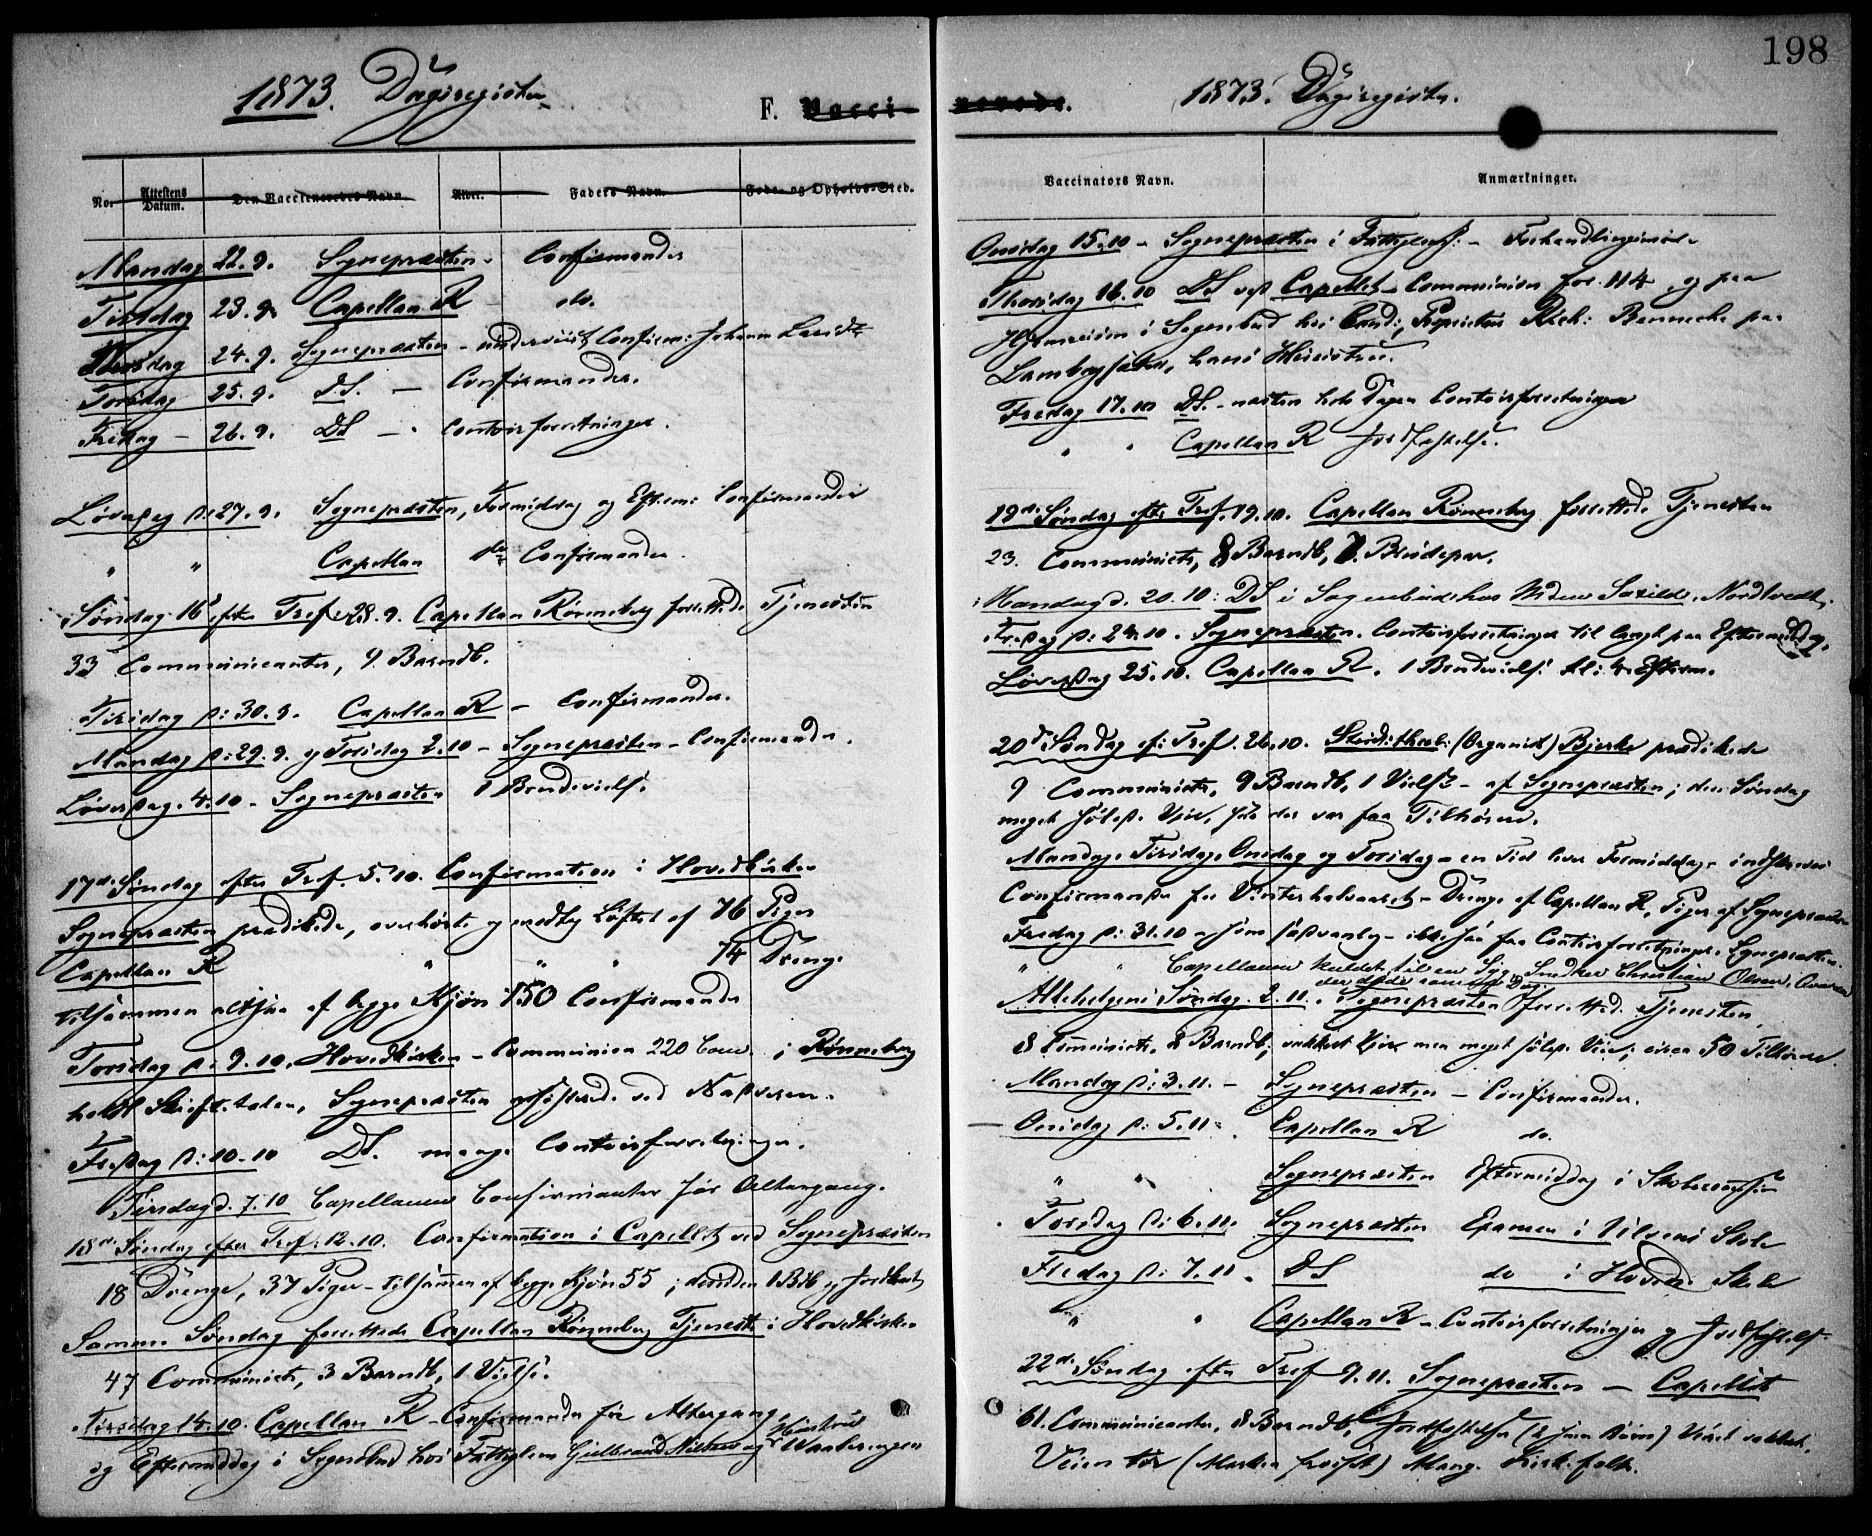 1873. Dagsregister
F. Vacci-
No.
Attestens Datum.
Den Vaccineredes Navn.
Alder.
Faders Navn.
Føde- og Opholds-Sted.
Mandag 22.9. Sognepræsten - Confirmander
Tirsdag 23.9. Capellan R do.
Onsdag 24.9. Sognepræsten - underviist Confirm: Johanne
Torsdag 25.9. DS. - Confirmander.
Fredag - 26.9. DS - Contoirforretninger.
Løverdag d: 27.9. Sognepræsten, Formiddag og Efterm: Confirmander
" " Capellan Confirmander.
Søndag 16d efter Tref. 28.9. Capellan Rönneberg forrettede Tjenesten
33 Communicanter, 9 Barndb.
Tirsdag d: 30.9. Capellan R - Confirmander.
Mandag d: 29.9. og Torsdag 2.10 - Sognepræsten - Confirmander.
Løverdag. 4.10 - Sognepræsten 1 Brudevielse
17de Søndag efter Tref. 5.10. Confirmation i Hovedkirken
Sognepræsten prædikede, overhørte og modtog Løftet af 76 Piger
Capellan R " " " 74 Drenge
tilsammen altsaa af begge Kjøn 150 Confirmander
Torsdag d: 9.10. Hovedkirken - Communion 220 Com. ; Rönneberg
holdt Skriftetalen, Sognepræsten ved Nadveren.
Fredag d: 10.10 DS. mange Contoirforretninger.
Tirsdag d. 7.10 Capellanen Confirmanter før Altergang.
18de Søndag efter Tref: 12.10. Confirmation i Capellet ved Sognepræsten
18 Drenge, 37 Piger - tilsammen af begge Kjøn 55 ; desuden 1 Bdb og Jordfæst
Samme Søndag forrettede Capellan Rönneberg Tjeneste i Hovedkirken
47 Communicets, 3 Barndb, 1 Vielse.
Tirsdag 14.10. Capellan R - Confirmander før Altergang,
og Eftermiddag i Sognebud hos Fattiglem Gulbrand Nilsens Hustrue Vaaleringen
nerede.
1873. Dagsregister.
198
Vaccinators Navn.
Anmærkninger.
Onsdag 15.10 - Sognepræsten i Fattigcomm: - Forhandlingsmøde
Thorsdag 16.10 DS ved Capellet - Communion for 114, og paa
Hjemveien i Sognebud hos Cand: Proprietær Rich: Benneche paa
hans Hustru.
Fredag 17.10 DS. - næsten hele Dagen Contoirforretninger
" " Capellan R Jordfæstelse.
19de Søndag efter Tref. 19.10. Capellan Rönneberg forrettede Tjenesten
23. Communicets, 8 Barndb, Brudepar.
Mandag d. 20.10: DS i Sognebud hos Nordtvedt.
Fredag d: 24.10. Sognepræsten. Contoirforretninger til langt paa Eftermiddag.
Løverdag 25.10. Capellan R. 1 Brudevielse kl: 4 Efterm.
20de Søndag ef: Tref. 26.10. (Organist) Bjerke prædikede
9 Communicets, 9 Barndb, 1 Vielse - af Sognepræsten; den Søndag
meget Føre, saa der var faa Tilhørere.
Mandag, Tirsdag, Onsdag og Torsdag - en Tid hver Formiddag - indskrevet
Confirmander for Vinterhalvaaret - Drenge af Capellan R, Piger af Sognepræsten
Fredag d: 31.10 - som sædvanlig - ikke saa faa Contoirforretninger. Sognepræsten.
" " Capellanen kaldet til en Syg, Snedker Christian Olsen,
der døde samme Dag
Allehelgens Søndag. 2.11. Sognepræsten forrettede Tjenesten
8 Communicets, 8 Barndb, vakkert Veir men meget Vei; circa 50 Tilhørere
Mandag d: 3.11. - Sognepræsten - Confirmander.
Onsdag d: 5.11. Capellan R do.
" " Sognepræsten Eftermiddag i Skolecommission
Torsdag d: 6.11. Sognepræsten Examen i Skole
Fredag d: 7.11. DS do i Skole
" " Capellan R - Contoirforretninger og Jordfæstelse
22de Søndag efter Tref 9.11. Sognepræsten - Capellet
61. Communicanter, 8 Barndb, Jordfæstelse Veiret vakkert.
Veien tør (Marken frossen) Mange Kirkefolk.